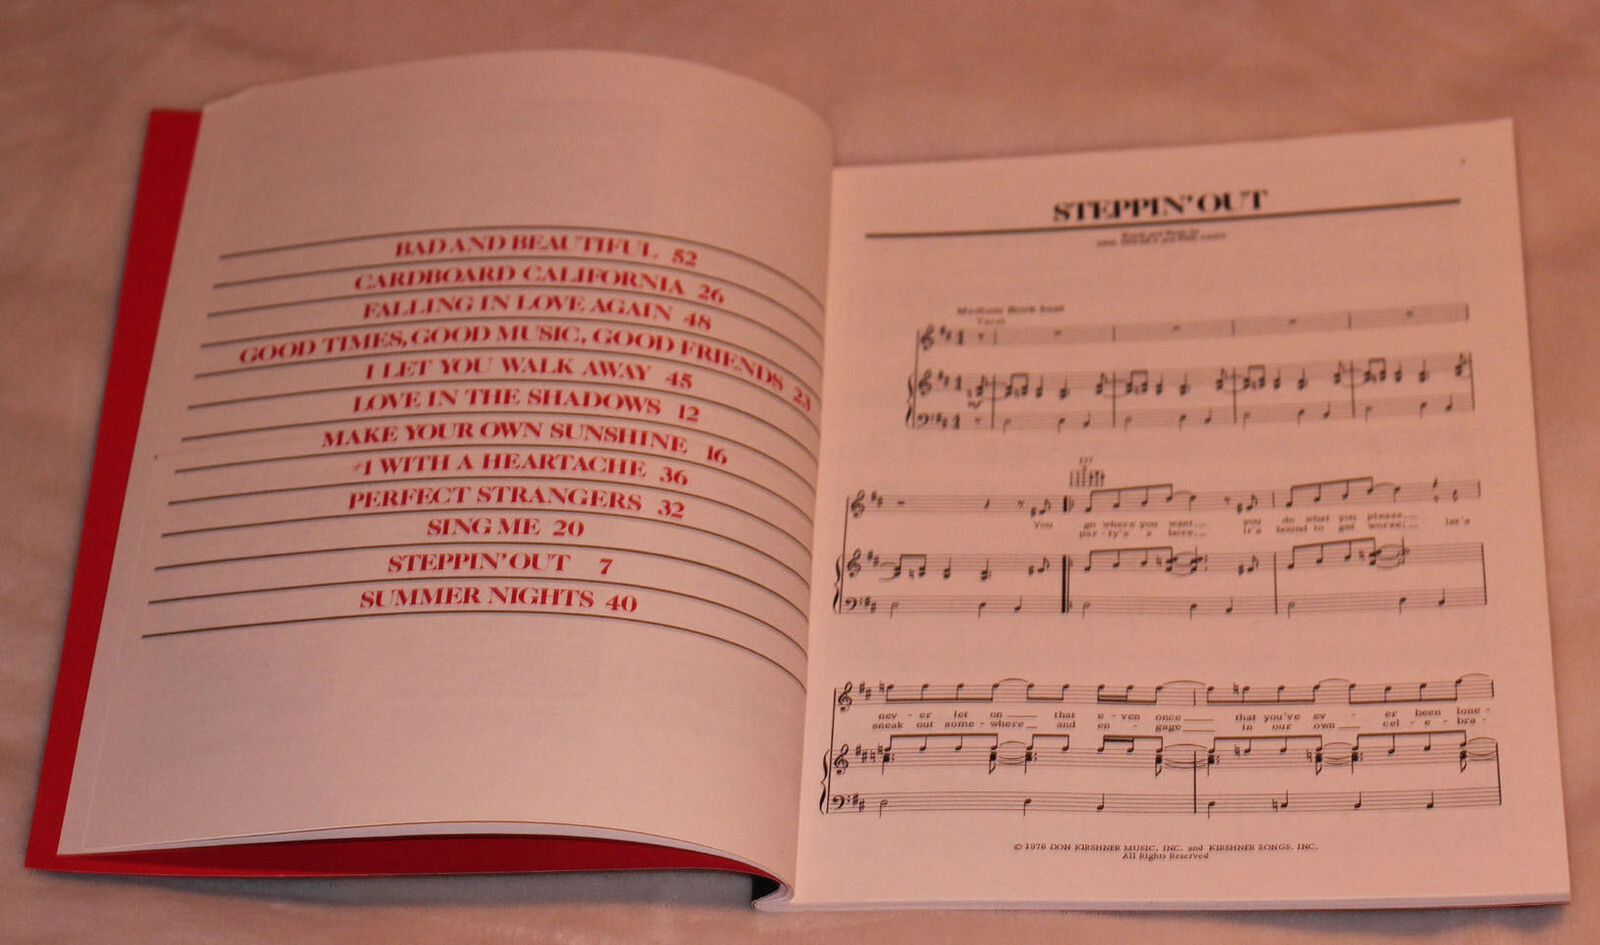 BAD AND BEAUTIFUL 52
CARDBOARD CALIFORNIA 26
FALLING IN LOVE AGAIN 48
GOOD TIMES, GOOD MUSIC, GOOD FRIENDS 23
I LET YOU WALK AWAY 45
LOVE IN THE SHADOWS 12
MAKE YOUR OWN SUNSHINE 16
#1 WITH A HEARTACHE 36
PERFECT STRANGERS 32
SING ME 20
STEPPIN' OUT 7
SUMMER NIGHTS 40
STEPPIN' OUT
Words and Music by
Medium Rock beat
Tacet
D7
You go where you want, you do what you please,
par-ty's a bore, it's bound to get worse; let's
nev - er let on that e - ven once that you've ev - er been lone -
sneak out some - where and en - gage in our own cel - e - bra -
© 1976 DON KIRSHNER MUSIC, INC. and KIRSHNER SONGS, INC.
All Rights Reserved